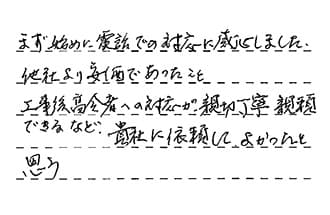 まず始めに電話での対応に感心しました、
他社より安価であったこと
工事後高令者への対応が親切丁寧 親頼
できるなど、貴社に依頼してよかったと
思う